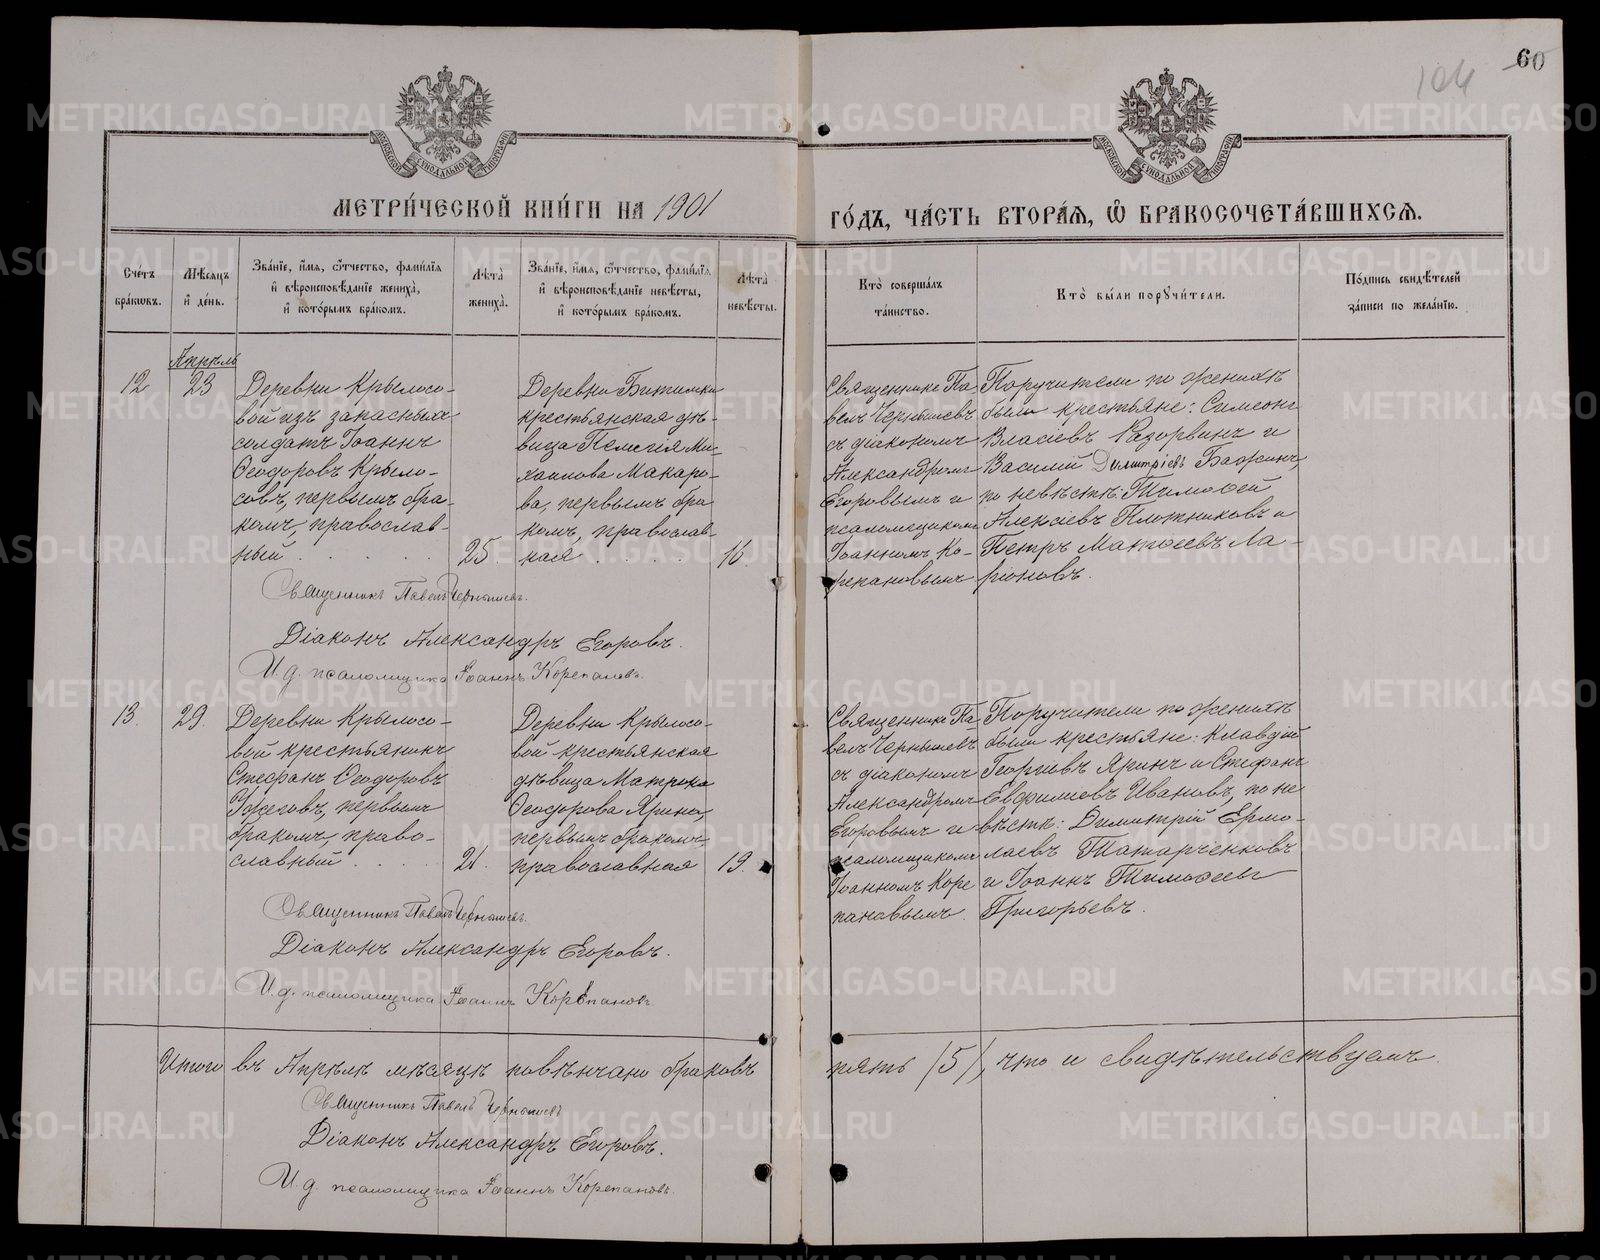 60
104
МЕТРИ́ЧЕСКОЙ КНИ́ГИ НА 1901
ГО́ДЪ, ЧА́СТЬ ВТОРА́Я, Ѡ БРАКОСОЧЕТА́ВШИХСЯ.
Сче́тъ браковъ.
Мѣсяцъ и де́нь.
Зва́нїе, и́мя, ѻ́тчество, фами́лїя
и вѣроисповѣ́данїе жениха̀,
и кото́рымъ бра́комъ.
Лѣта̀ жениха̀.
Зва́нїе, и́мя, ѻ́тчество, фами́лїя
и вѣроисповѣ́данїе невѣ́сты,
и кото́рымъ бра́комъ.
Лѣта̀ невѣ́сты.
Кто̀ соверша́лъ
та́инство.
Кто̀ бы́ли поручи́тели.
По́дпись свидѣ́телей
за́писи по жела́нїю.
12
Апрѣль
23
Деревни Крылосо-
вой изъ запасныхъ
солдатъ Іоаннъ
Ѳеодоровъ Крыло-
совъ, первымъ бра-
комъ, православ-
ный
25.
Деревни Битимки
крестьянская дѣ-
вица Пелагія Ми-
хаилова Макаро-
ва, первымъ бра
комъ, православ-
ная
16.
Священникъ Па
велъ Чернышевъ
съ діакономъ
Александромъ
Егоровымъ и
псаломщикомъ
Іоанномъ Ко-
репановымъ
Поручители по женихѣ
были крестьяне: Симеонъ
Власіевъ Разорвинъ и
Василій Димитріевъ Бажинъ,
по невѣстѣ: Тимоѳей
Алексіевъ Плотниковъ и
Петръ Матѳеевъ Ла-
ріоновъ.
Священникъ Павелъ Чернышевъ.
Діаконъ Александръ Егоровъ.
И. д. псаломщика Іоаннъ Корепановъ.
13.
29.
Деревни Крылосо-
вой крестьянинъ
Стефанъ Ѳеодоровъ
первымъ
бракомъ, право-
славный
21.
Деревни Крылосо-
вой крестьянская
дѣвица Матрона
Ѳеодорова Ярина,
первымъ бракомъ,
православная
19.
Священникъ Па
велъ Чернышевъ
съ діакономъ
Александромъ
Егоровымъ и
псаломщикомъ
Іоанномъ Коре
пановымъ.
Поручители по женихѣ
были крестьяне: Клавдій
Георгіевъ Яринъ и Стефанъ
Евфиміевъ Ивановъ, по не
вѣстѣ: Димитрій Ермо-
лаевъ Татарченковъ
и Іоаннъ Тимоѳеевъ
Григорьевъ.
Священникъ Павелъ Чернышевъ.
Діаконъ Александръ Егоровъ.
И. д. псаломщика Іоаннъ Корепановъ.
Итого въ Апрѣлѣ мѣсяцѣ повѣнчано браковъ пять /5/, что и свидѣтельствуемъ.
Священникъ Павелъ Чернышевъ
Діаконъ Александръ Егоровъ.
И. д. псаломщика Іоаннъ Корепановъ.
METRIKI.GASO-URAL.RU